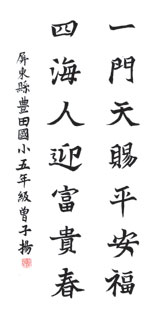 一門天賜平安福
四海人迎富貴春
屏東縣豐田國小五年級曾子揚